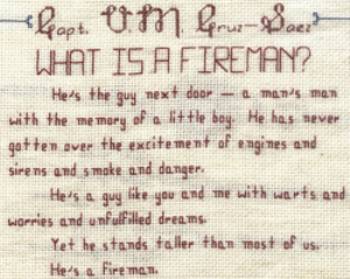 Capt. V.M. Cruz-Saez
WHAT IS A FIREMAN?
He's the guy next door — a man's man
with the memory of a little boy. He has never
gotten over the excitement of engines and
sirens and smoke and danger.
He's a guy like you and me with warts and
worries and unfulfilled dreams.
Yet he stands taller than most of us.
He's a fireman.